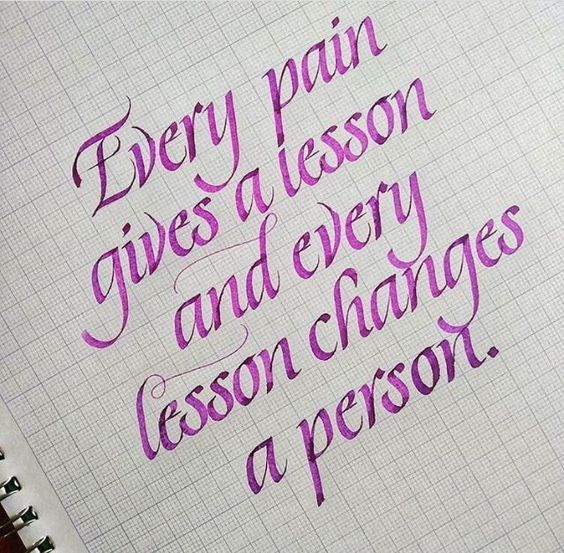 Every pain
gives a lesson
and every
lesson changes
a person.